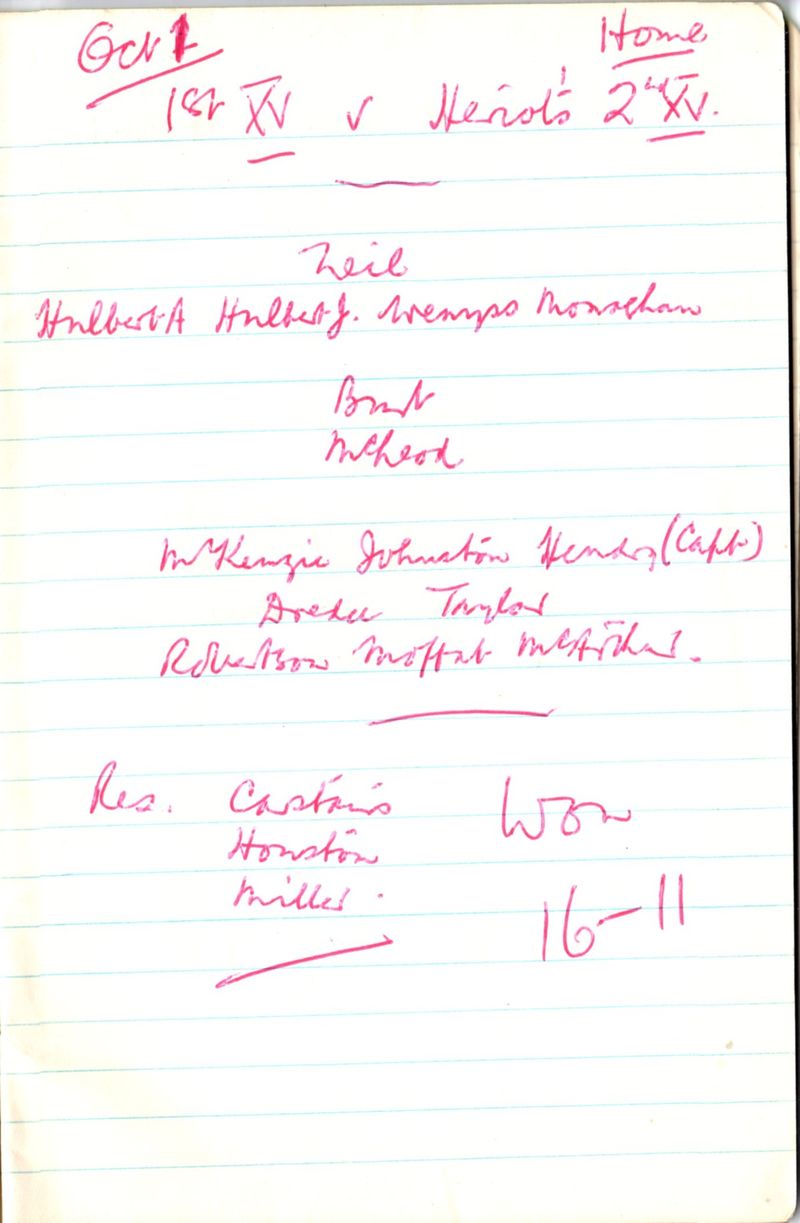 Oct 1 Home
1st XV v Heriot's 2nd XV.
Neil
Hulbert A Hulbert J. Wemyss Monaghan
Brunt
McLeod
McKenzie Johnston Hendry (Capt)
Taylor
Robertson Moffat McArthur.
Res. Carstairs Won
Houston
Miller.
16-11